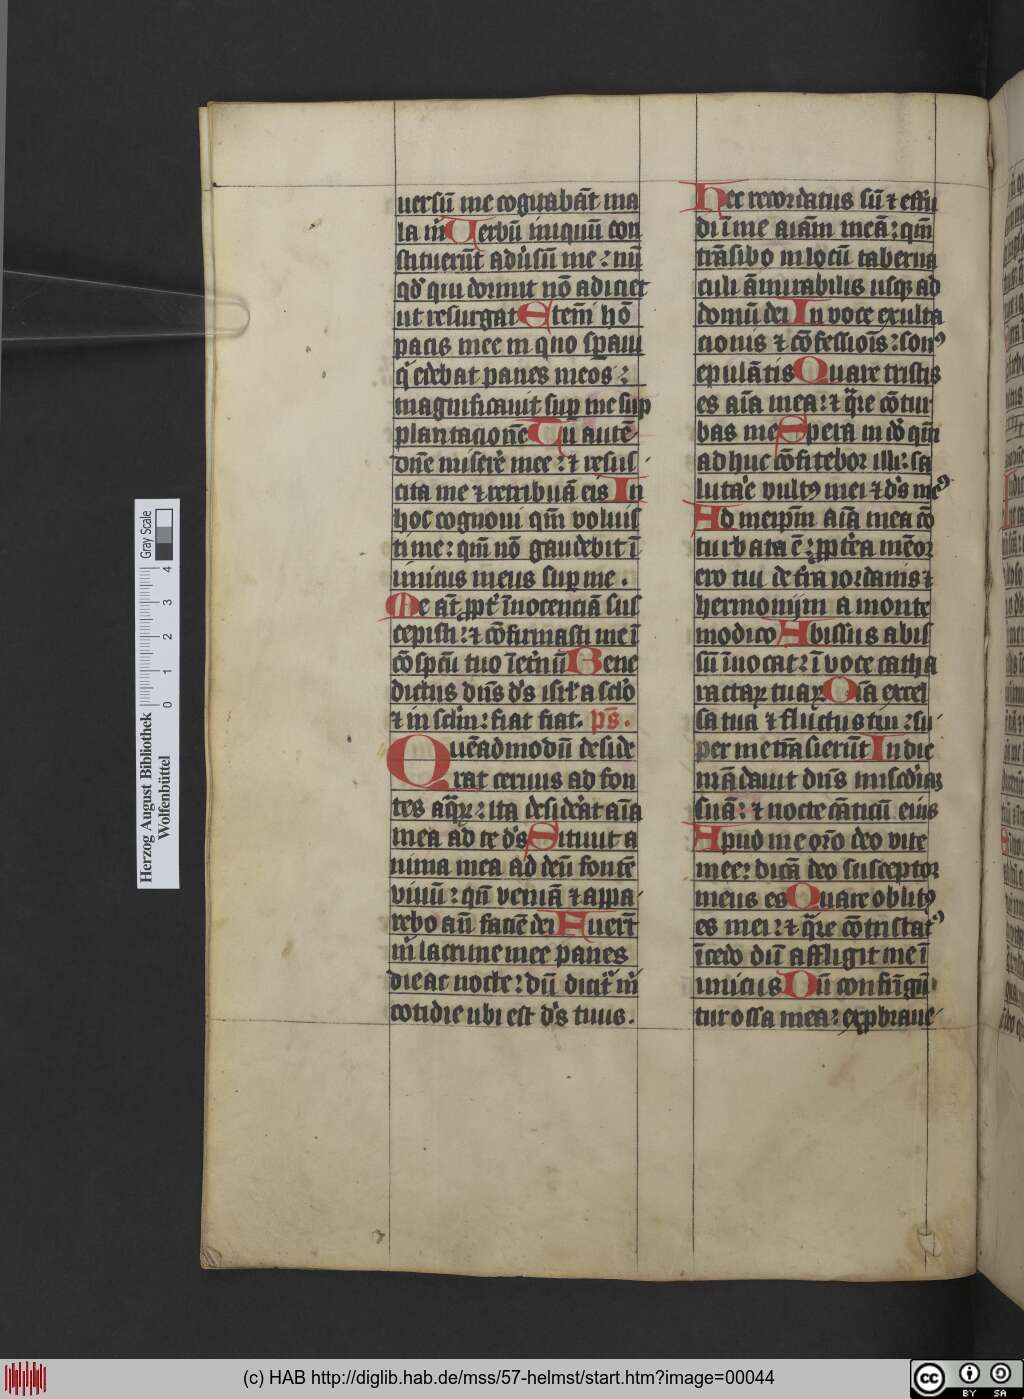 uersū me cogitabāt ma
la m̄ Uerbū iniquū con
stituerūt adu̓sū me : nū
qd̓ qui dormit nō adiciet
ut resurgat Etem̄ hō
pacis mee in quo sp̄aui
q̇ edebat panes meos :
magnificauit sup me sup
plantacionē Tu autē
dn̄e miserē mee : ⁊ resus
cita me ⁊ retribuā eis In
hoc cognoui qm̄ voluis
ti me : qm̄ nō gaudebit ī
imicus meus sup me .
Me at̄ ꝓpt̓ īnocenciā sus
cepisti : ⁊ cōfirmasti me ī
cōspcū tuo īet̓nū Bene
dictus dn̄s d̓s isrl̓ a sclō
⁊ in sclm̄ : fiat fiat . ps̄ .
Quēadmodū deside
rat ceruus ad fon
tes aq̈ꝝ : ita desid̓at aīa
mea ad te d̓s Sitiuit a
nima mea ad deū fontē
viuū : qn̄ veniā ⁊ appa
rebo an̄ faciē dei Fuer̄t
m̄ lacrime mee panes
die ac nocte : dū dicit̓ m̄
cotidie ubi est d̓s tuus .
Hec recordatus sū ⁊ effu
di ī me aīam meā : qm̄
trāsibo in locū taberna
culi āmirabilis usqꝫ ad
domū dei In voce exulta
cionis ⁊ cōfessiois̄ : sonꝰ
epulātis Quare tristis
es aīa mea : ⁊ q̈re cōtur
bas me Spera in dō qm̄
adhuc cōfitebor illi : sa
luta̓e vultꝰ mei ⁊ d̓s meꝰ
Ad meipm̄ aīa mea cō
turbata ē : ꝓpt̓ea mēor
ero tui de t̓ra iordanis ⁊
hermonijm a monte
modico Abissus abis
sū īuocat : ī voce catha
ractaꝝ tuaꝝ Oīa excel
sa tua ⁊ fluctus tui : su
per me trāsierūt In die
mādauit dn̄s miscd̓iaꝫ
suā : ⁊ nocte cāticū eius
Apud me orō deo vite
mee : dicā deo susceptor
meus es Quare oblitꝰ
es mei : ⁊ q̈re cōtristatꝰ
īcedo dū affligit me ī
imicus Dū confrīgū
tur ossa mea : exprobraue
Herzog August Bibliothek
Wolfenbüttel
Gray Scale
0 1 2 3 4
(c) HAB http://diglib.hab.de/mss/57-helmst/start.htm?image=00044
cc BY SA